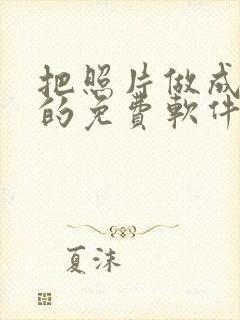 把照片做成
的免費軟件
夏沫